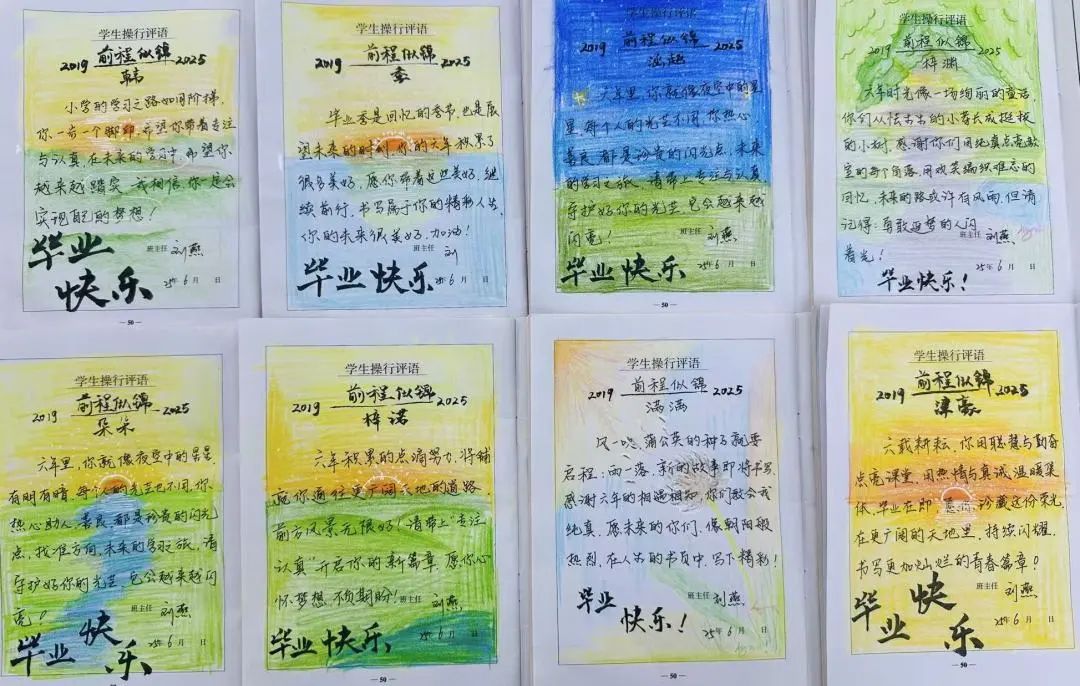 学生操行评语
2019 前程似锦 2025
韩
小学的学习之路如同阶梯,
你一步一个脚印,希望你带着专注
与认真,在未来的学习中,希望你
越来越踏实,我相信,你一定会
实现自己的梦想!
班主任 刘燕
毕业
快乐
25年6月 日
学生操行评语
2019 前程似锦 2025
毕业季是回忆的季节,也是展
望未来的时刻,你的六年积累了
很多美好,愿你带着这些美好,继
续前行,书写属于你的精彩人生,
你的未来很美好,加油!
班主任 刘
毕业快乐
25年6月 日
— 50 —
学生操行评语
2019 前程似锦 2025
六年里,你就像夜空中的星
星,每个人的光芒不同,你热心
善良,都是珍贵的闪光点,未来
的学习之旅,请带上专注与认真,
守护好你的光芒,它会越来越
闪亮!
班主任 刘燕
毕业快乐
25年6月 日
— 50 —
学生操行评语
2019 前程似锦 2025
梓渊
六年时光像一场绚丽的童话,
你们从怯生生的小芽长成挺拔
的小树,感谢你们用纯真点亮教
室的每个角落,用欢笑编织难忘的
回忆,未来的路或许有风雨,但请
记得:勇敢追梦的人闪
着光!
班主任 刘燕
毕业快乐!
25年6月 日
学生操行评语
2019 前程似锦 2025
朵朵
六年里,你就像夜空中的星星,
有明有暗,每人的光芒也不同,你
热心助人,善良,都是珍贵的闪光
点,找准方向,未来的学习之旅,请
守护好你的光芒,它会越来越闪
亮!
班主任 刘燕
25年6月 日
毕业快乐
50
学生操行评语
2019 前程似锦 2025
梓诺
六年积累的点滴努力,将铺
就你通往更广阔天地的道路,
前方风景无限好!请带上“专注
认真”开启你的新篇章,愿你心
怀梦想,不负期盼!
班主任 刘燕
毕业快乐
25年6月 日
— 50 —
学生操行评语
2019 前程似锦 2025
满满
风一吹,蒲公英的种子就要
启程,雨一落,新的故事即将书写,
感谢六年的相遇相知,你们教会我
纯真,愿未来的你们,像朝阳般
热烈,在人生的书页中,写下精彩!
班主任 刘燕
毕业
快乐!
25年6月 日
— 50 —
学生操行评语
2019 前程似锦 2025
津豪
六载耕耘,你用聪慧与勤奋
点亮课堂,用热情与真诚温暖集
体,毕业在即,愿你珍藏这份荣光,
在更广阔的天地里,持续闪耀,
书写更加灿烂的青春篇章!
班主任 刘燕
毕业
快乐
25年6月 日
— 50 —